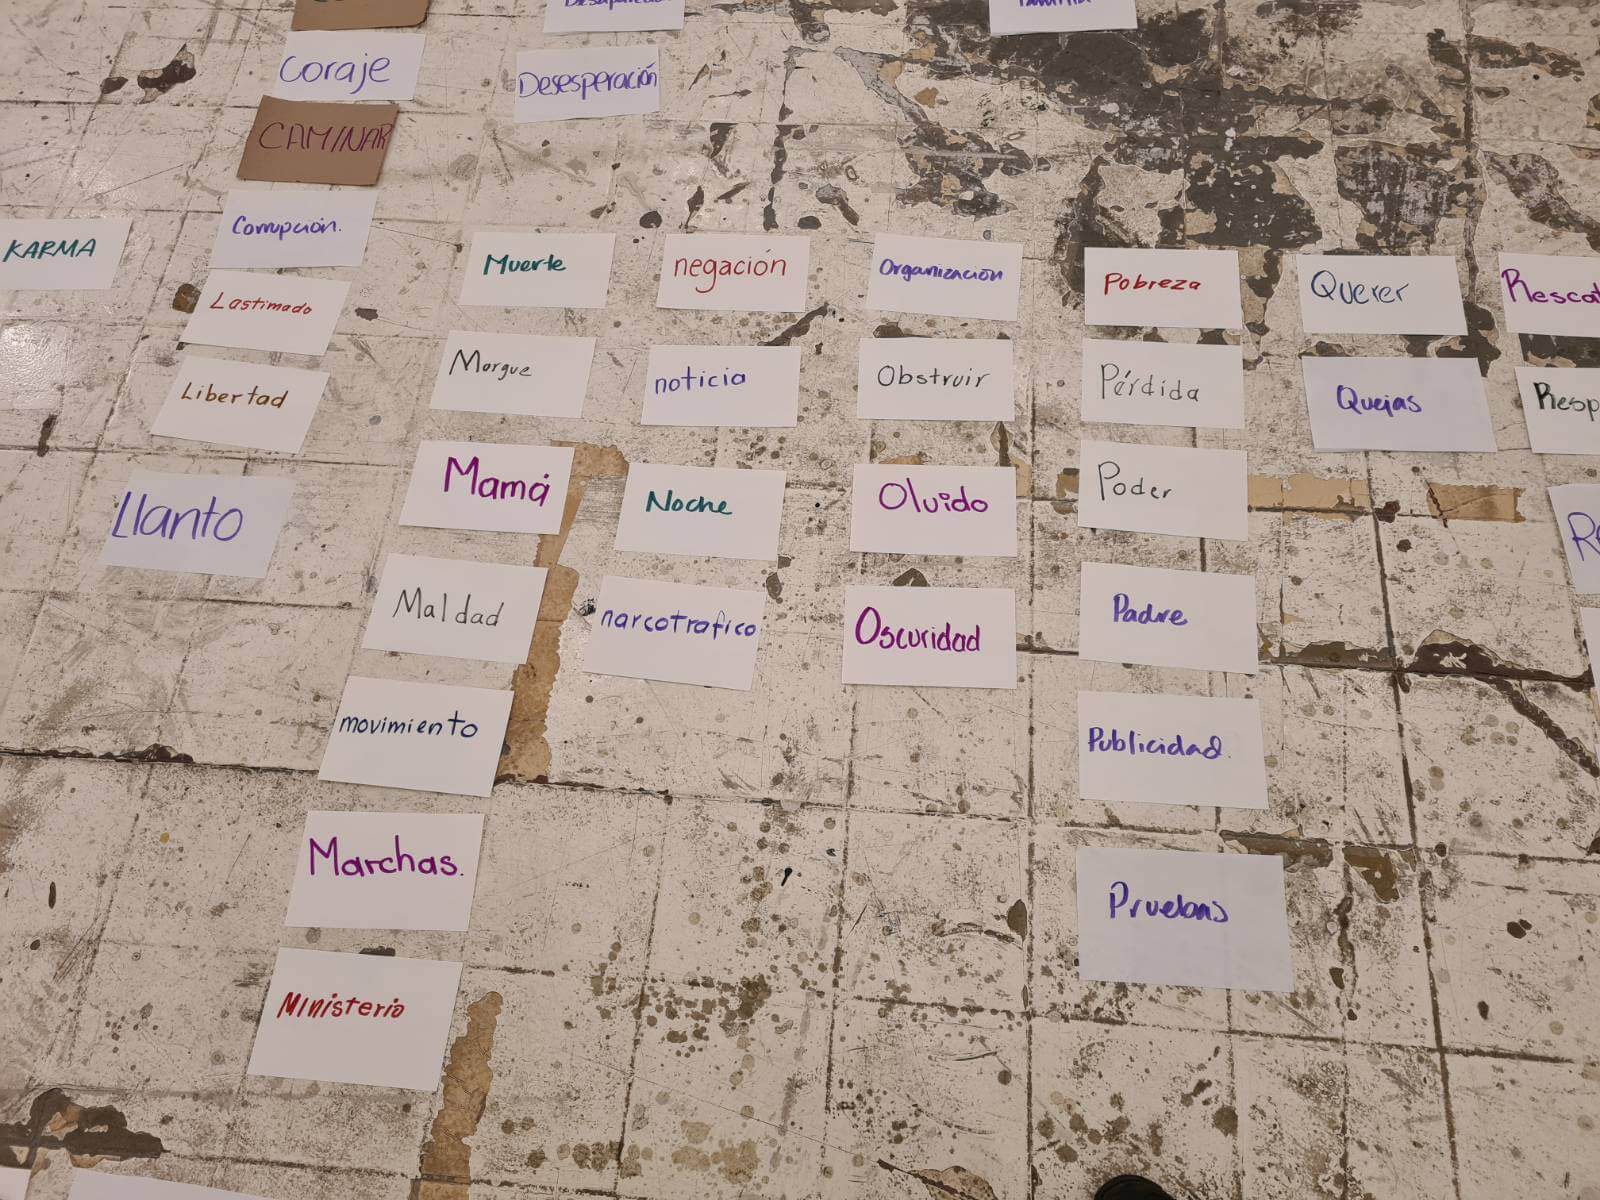 Coraje
CAMINAR
Corrupción.
Desesperación
KARMA
Lastimado
Libertad
Llanto
Muerte
Morgue
Mamá
Maldad
movimiento
Marchas.
Ministerio
negación
noticia
Noche
narcotrafico
Organización
Obstruir
Olvido
Oscuridad
Pobreza
Pérdida
Poder
Padre
Publicidad.
Pruebas
Querer
Quejas
Rescat
Resp